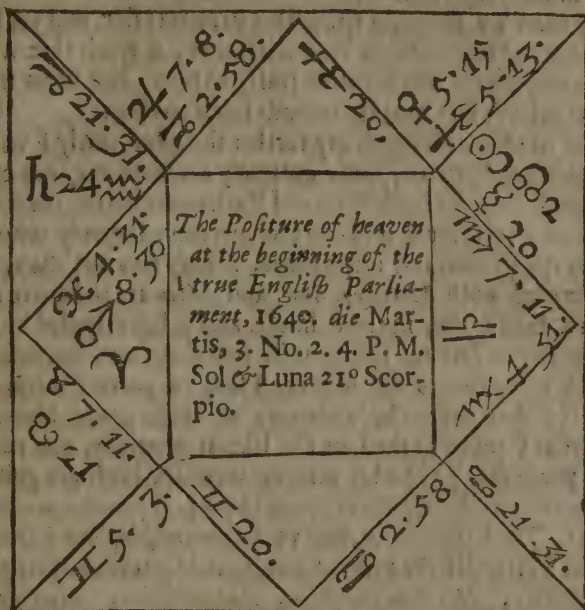 ♑ 21. 31.
♃ 7. 8.
♑ 2. 58.
♐ 20,
♀ 5. 15
♐ 5. 13.
☉ ☽ ☊ 2
20
♏ 7. 11.
♄ 24 ♒
♓ 4. 31.
♂ 8. 30
♈
♉ 7. 11.
☋ 21
♊ 5. 3.
♊ 20.
♋ 2. 58
♋ 21. 31.
♍ 4 31
♎
The Poſiture of heaven
at the beginning of the
true Engliſh Parlia-
ment, 1640. die Mar-
tis, 3. No. 2. 4. P. M.
Sol & Luna 21° Scor-
pio.